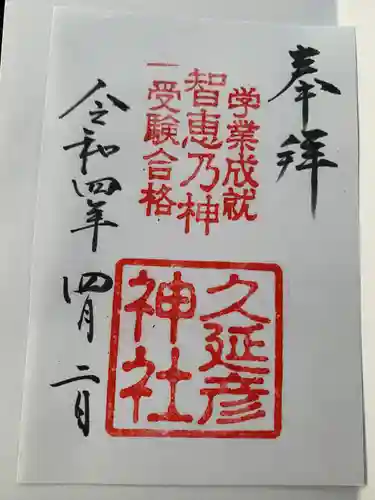 奉拝
学業成就
智恵乃神
一受験合格
久延彦
神社
令和四年 四月 二日